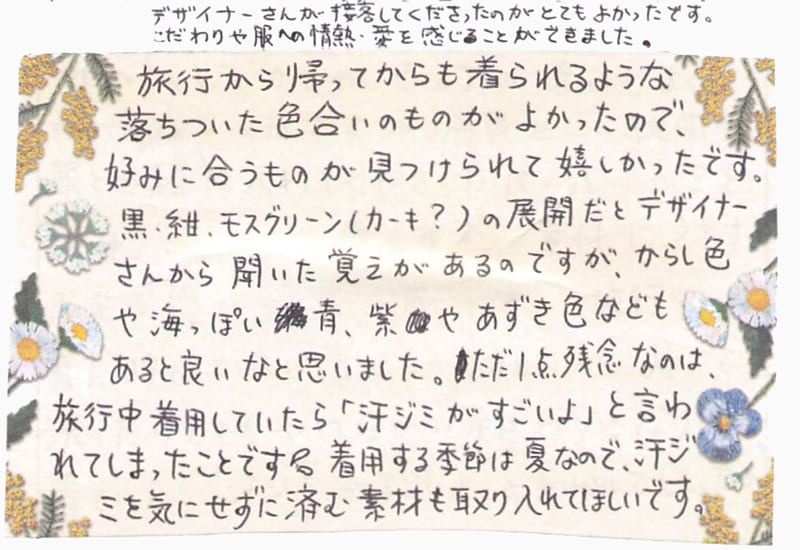 デザイナーさんが接客してくださったのがとてもよかったです。
こだわりや服への情熱・愛を感じることができました。
旅行から帰ってからも着られるような
落ちついた色合いのものがよかったので、
好みに合うものが見つけられて嬉しかったです。
黒・紺、モスグリーン(カーキ?)の展開だとデザイナー
さんから聞いた覚えがあるのですが、からし色
や海っぽい青、紫やあずき色なども
あると良いなと思いました。ただ1点残念なのは、
旅行中着用していたら「汗ジミがすごいよ」と言わ
れてしまったことです 着用する季節は夏なので、汗ジ
ミを気にせずに済む素材も取り入れてほしいです。